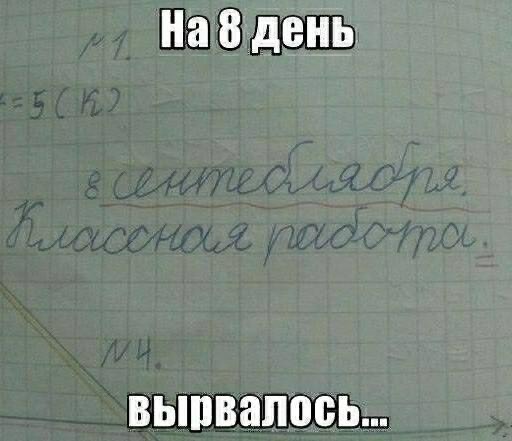 На 8 день
№1.
=5(К)
8 сентеблября.
Классная работа.
№4.
вырвалось...